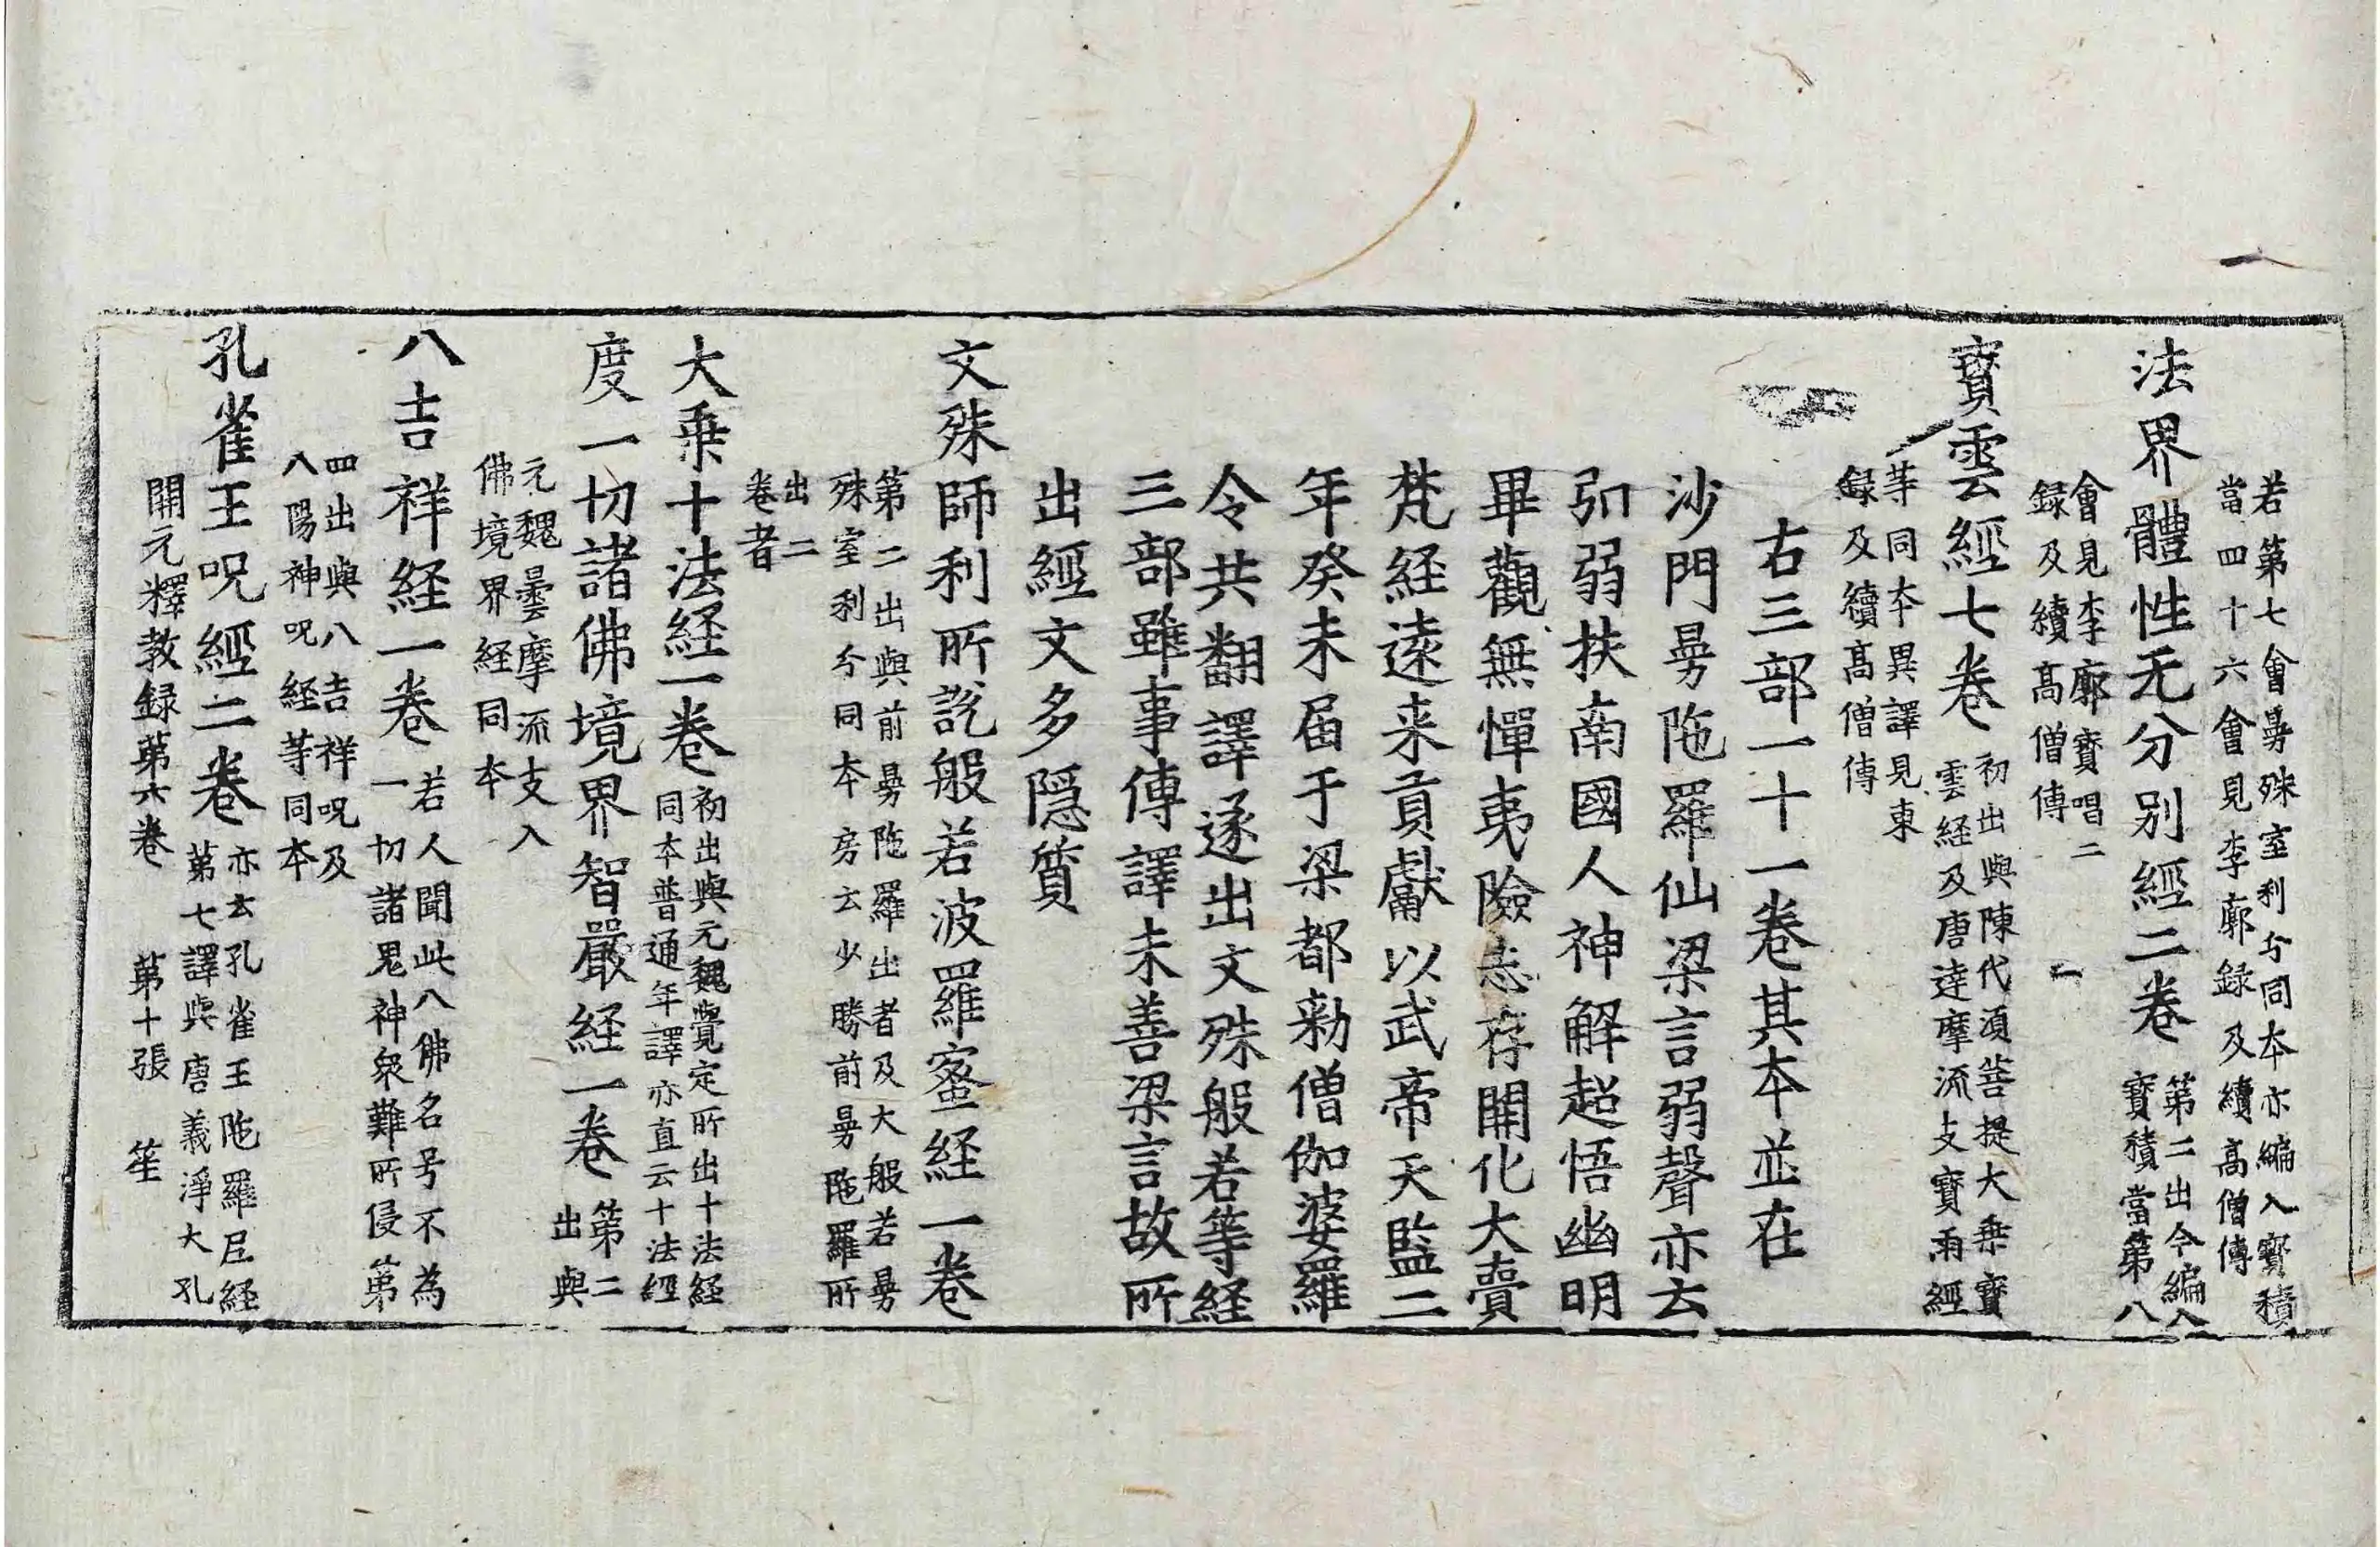 若第七會曼殊室利分同本亦編入寶積
當四十六會見李廓録及續高僧傳
法界體性无分别經二卷
第二出今編入
寶積當第八
會見李廓寶唱二
録及續高僧傳
寶雲經七卷
初出與陳代須菩提大乗寶
雲経及唐達摩流支寶雨經
等同本異譯見東
録及續高僧傳
右三部一十一卷其本並在
沙門曼陁羅仙梁言弱聲亦云
弘弱扶南國人神解超悟幽明
畢觀無憚夷險志存開化大賷
梵経遠来貢獻以武帝天監二
年癸未届于梁都勑僧伽婆羅
令共翻譯遂出文殊般若等経
三部雖事傳譯未善梁言故所
出經文多隠質
文殊師利所説般若波羅蜜経一卷
第二出與前曼陁羅出者及大般若曼
殊室利分同本房云少勝前曼陁羅所
出二
卷者
大乗十法経一卷
初出與元魏覺定所出十法経
同本普通年譯亦直云十法經
度一切諸佛境界智嚴経一卷
第二
出與
元魏曇摩流支入
佛境界経同本
八吉祥経一卷
若人聞此八佛名号不為
一切諸鬼神衆難所侵第
四出與八吉祥呪及
八陽神呪経等同本
孔雀王呪經二卷
亦云孔雀王陁羅尼経
第七譯與唐義淨大孔
開元釋教録第六卷　第十張　笙